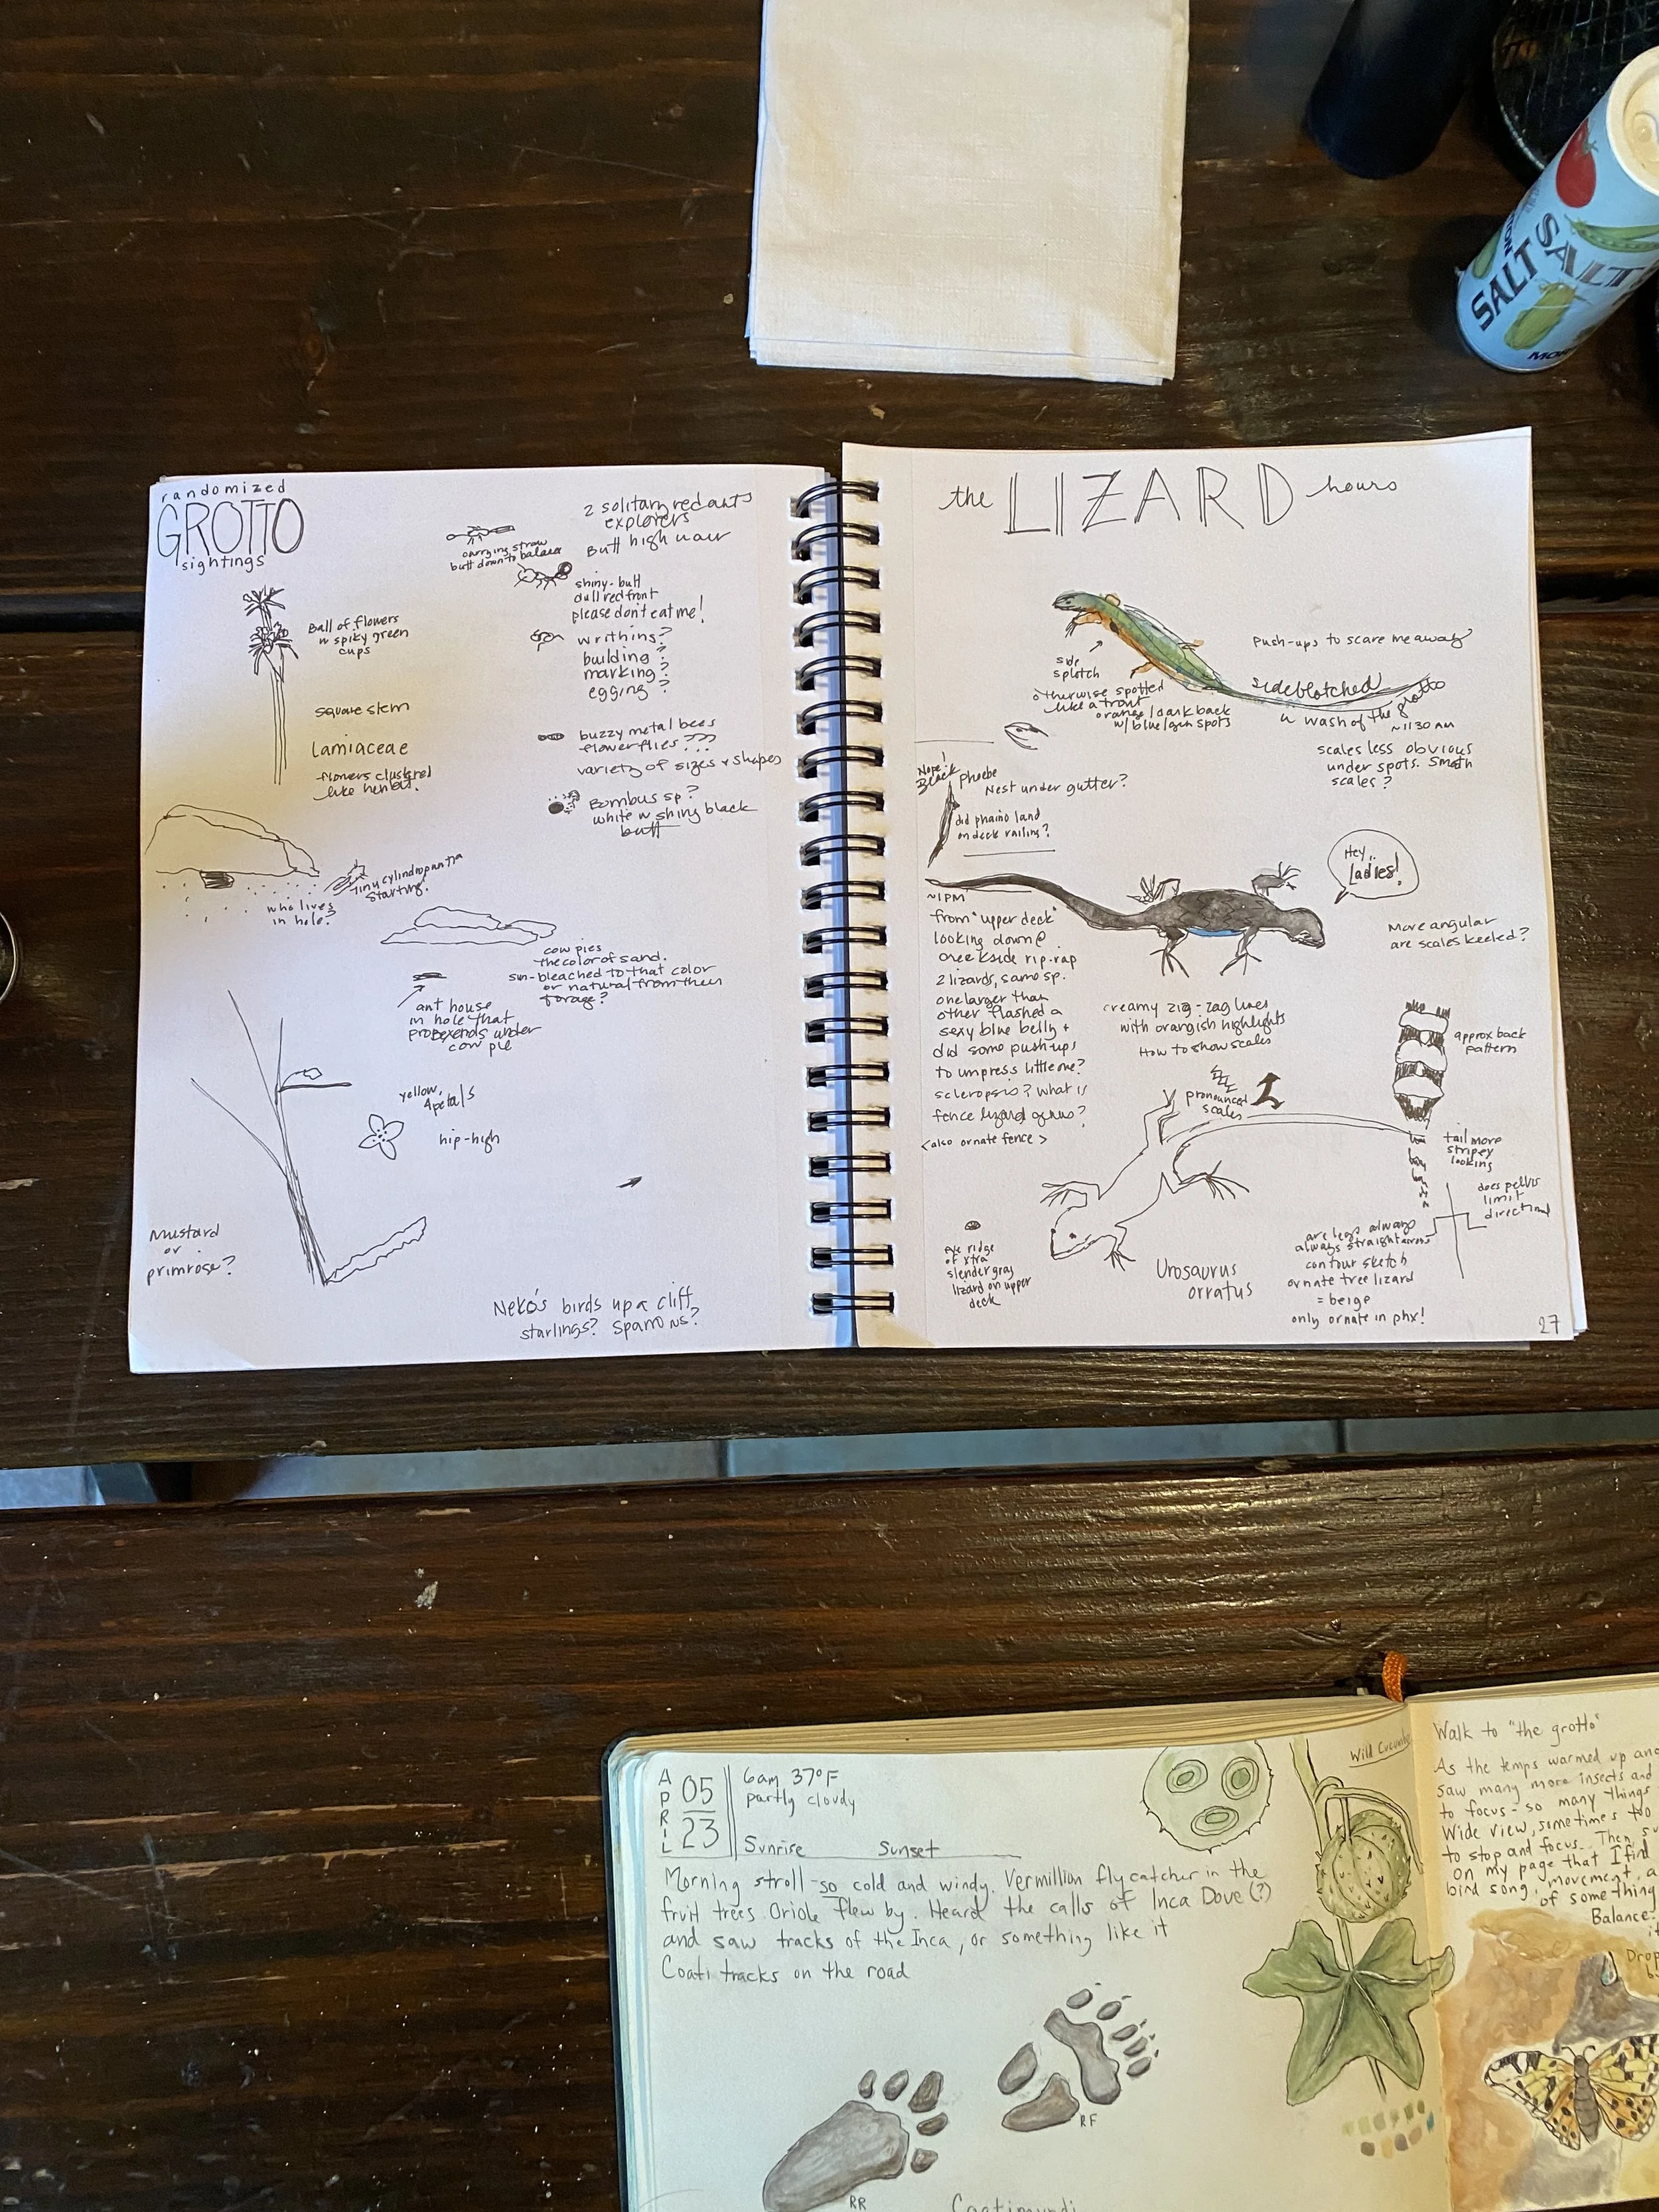 SALT
SALT
randomized
GROTTO
sightings
Ball of flowers
w spiky green
cups
square stem
Lamiaceae
flowers clustered
like henbit.
carrying straw
butt down to balance
2 solitary red ants
explorers
Butt high
shiny-butt
dull red front
please don't eat me!
writhing?
building?
marking?
egging?
buzzy metal bees
flower flies???
variety of sizes + shapes
Bombus sp?
white w shiny black
butt
who lives
in hole?
tiny cylindropuntia
starting!
cow pies
the color of sand.
sun-bleached to that color
or natural from their
forage?
ant house
in hole that
extends under
cow pie
yellow,
4 petals
hip-high
Mustard
or
primrose?
Neko's birds up a cliff
starlings? Sparrows?
the LIZARD hours
side
splotch
otherwise spotted
like a trout
orange/dark back
w/ blue/grn spots
Push-ups to scare me away?
Sideblotched
wash of the grotto
~11:30 AM
scales less obvious
under spots. Smooth
scales?
Nope!
Black phoebe
Nest under gutter?
did phaino land
on deck railing?
Hey..
Ladies!
~1PM
from "upper deck"
looking down @
creekside rip-rap
2 lizards, same sp.
one larger than
other flashed a
sexy blue belly +
did some push ups
to impress little one?
scleropsis? What is
fence lizard genus?
<also ornate fence>
More angular
are scales keeled?
creamy zig-zag lines
with orangish highlights
How to show scales
pronounced
scales
approx back
pattern
tail more
stripey
looking
does pelvis
limit
direction
eye ridge
of xtra
slender gray
lizard on upper
deck
Urosaurus
orratus
are legs always
always straight across
contour sketch
ornate tree lizard
= beige
only ornate in phx!
27
APRIL
05
23
6am 37°F
partly cloudy
Sunrise Sunset
Morning stroll - so cold and windy. Vermillion flycatcher in the
fruit trees. Oriole flew by. Heard the calls of Inca Dove (?)
and saw tracks of the Inca, or something like it
Coati tracks on the road
RF
RR
Coatimundi
Wild Cucumber
Walk to "the grotto"
As the temps warmed up and
saw many more insects and
to focus - so many things
Wide view, sometimes too
to stop and focus. Then
on my page that I find
bird song, movement, a
of something
Balance.
Drop